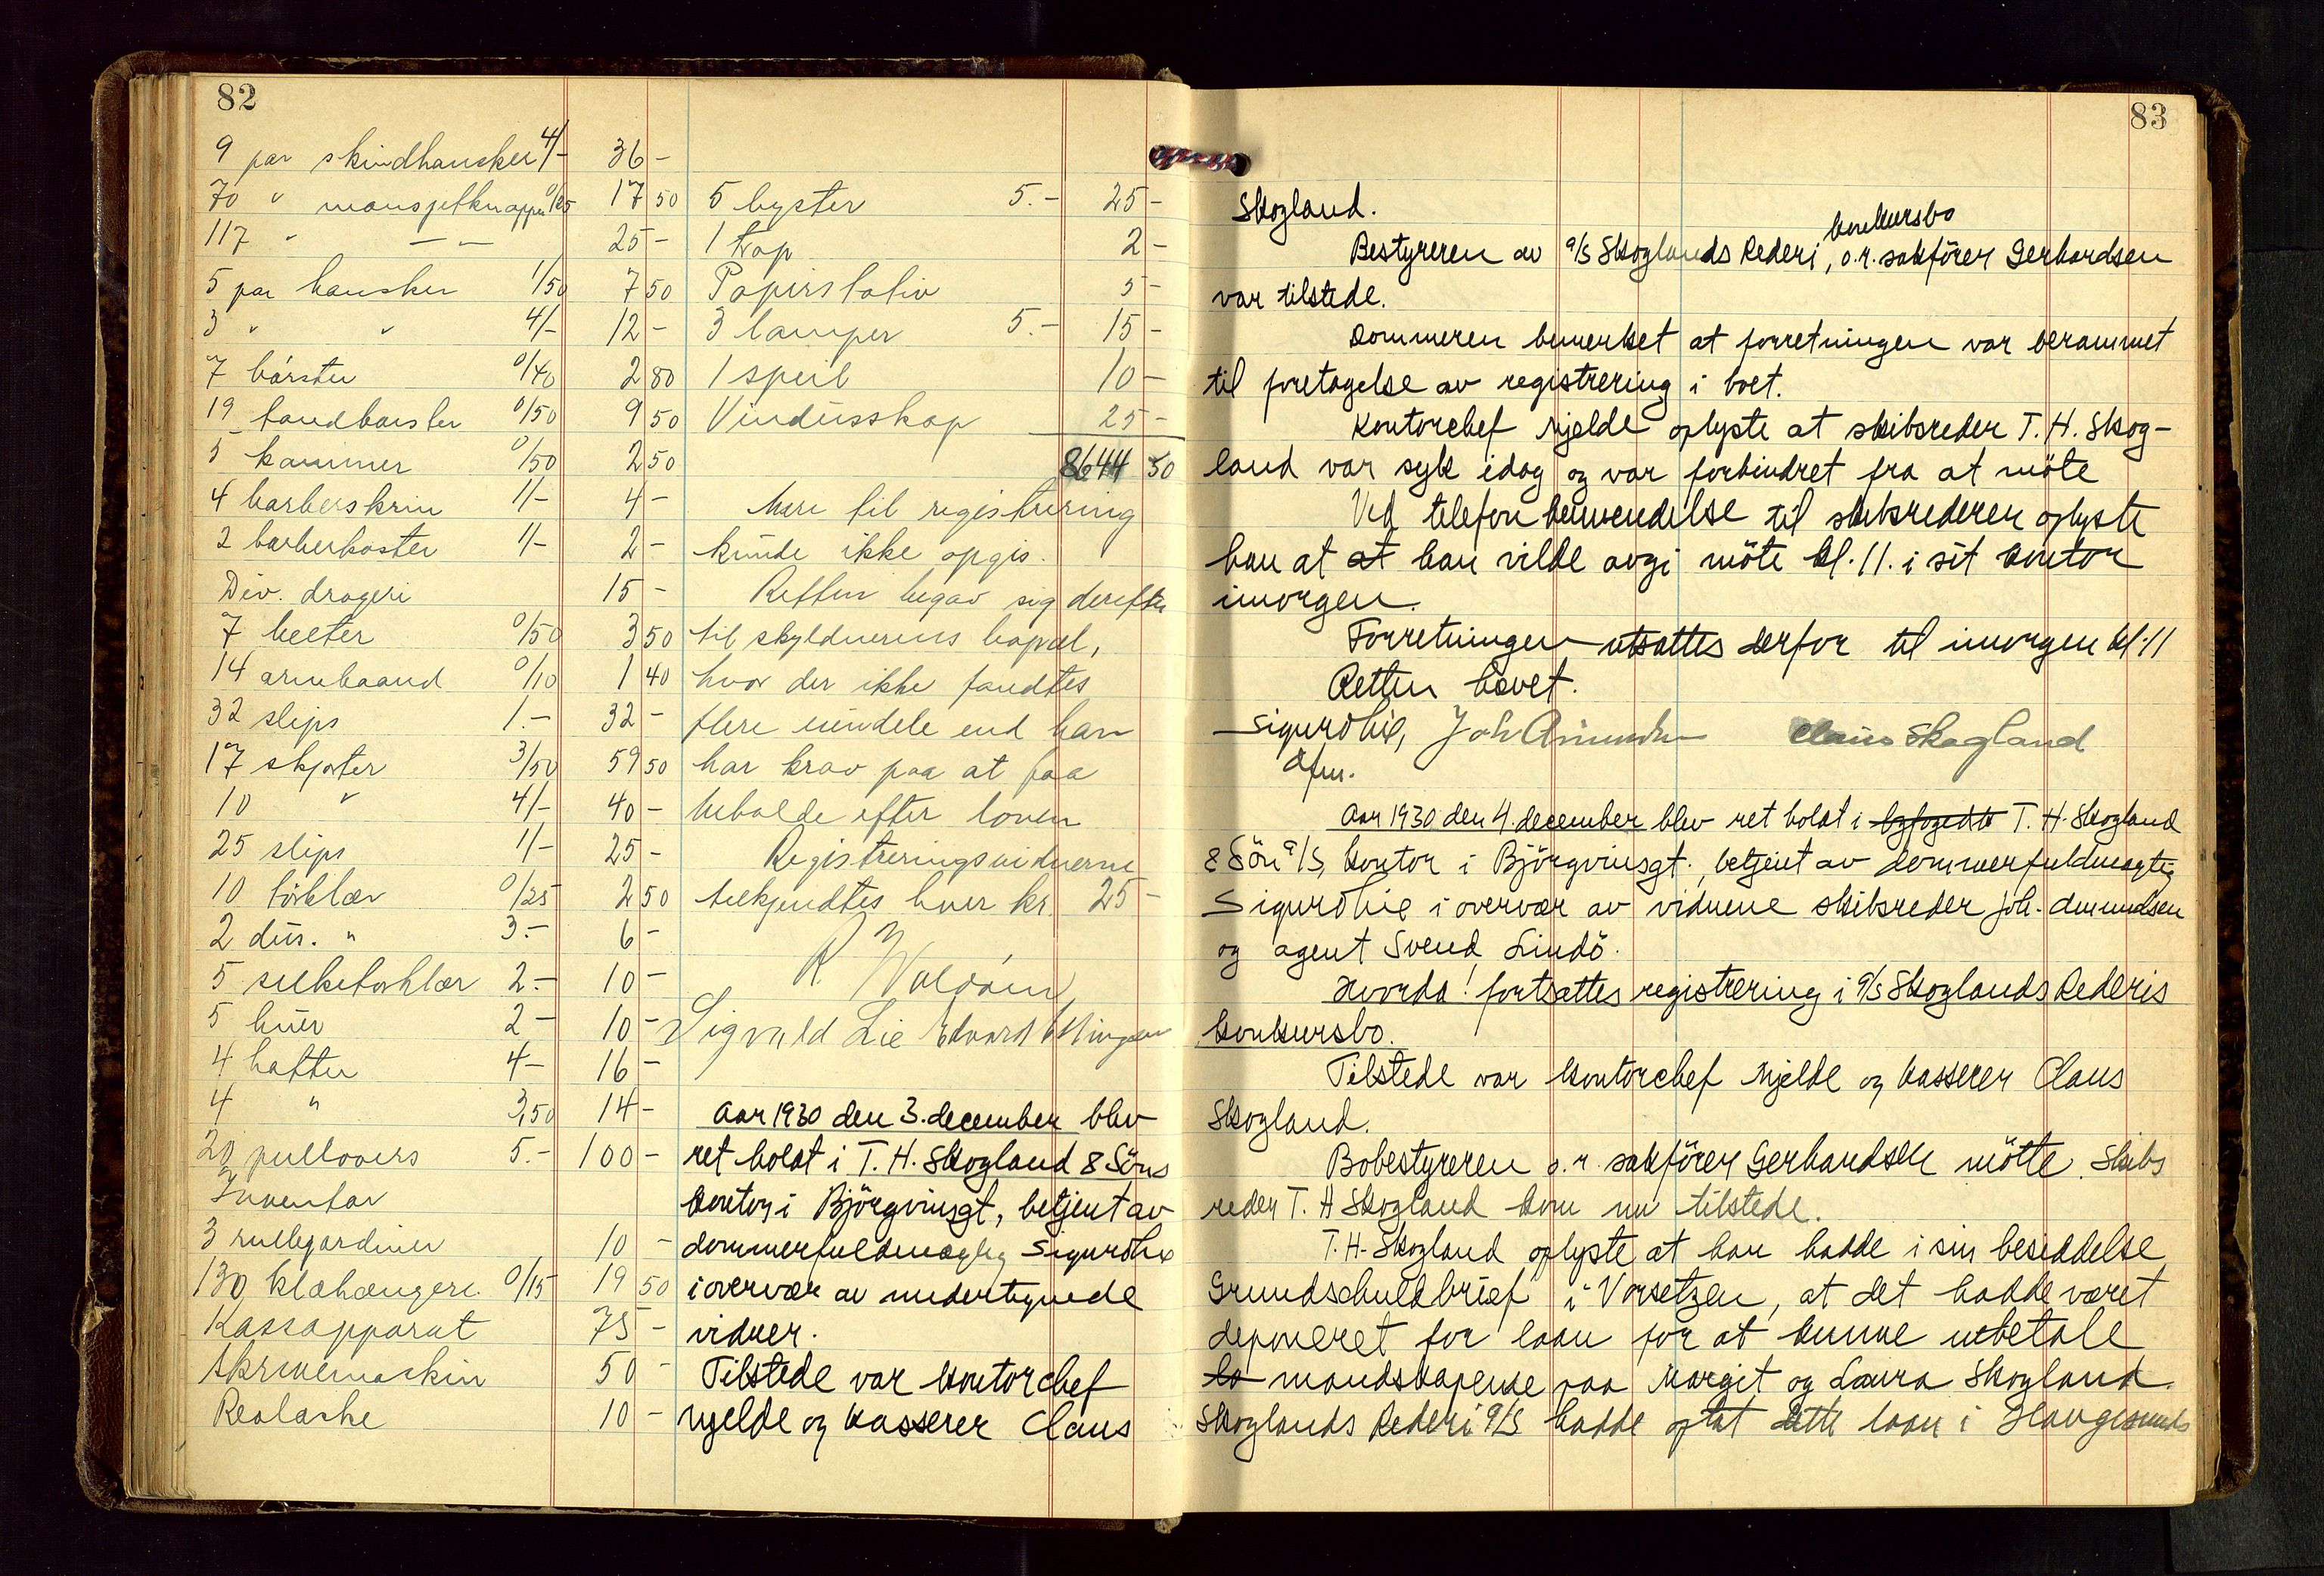 82
9 par skindhansker 4/- 36 -
70 " mansjetknapper 0/25 17 50
117 " — — 25 -
5 par hansker 1/50 7 50
3 " " 4/- 12 -
7 börster 0/40 2 80
19 tandbörster 0/50 9 50
5 kammer 0/50 2 50
4 barberskrin 1/- 4 -
2 barberkoster 1/- 2 -
Div. drogeri 15 -
7 belter 0/50 3 50
14 armbaand 0/10 1 40
32 slips 1.- 32 -
17 skjorter 3/50 59 50
10 " 4/- 40 -
25 slips 1/- 25 -
10 törklær 0/25 2 50
2 dus. " 3.- 6 -
5 silketörklær 2.- 10 -
5 huer 2 - 10 -
4 hatter 4 - 16 -
4 " 3,50 14 -
20 pullovers 5.- 100 -
Inventar
3 rullegardiner 10 -
130 klæhængere 0/15 19 50
Kassapparat 75 -
Skrivemaskin 50 -
Realaske 10 -
5 byster 5.- 25 -
1 trap 2 -
Papirstativ 5 -
3 lamper 5.- 15 -
1 speil 10 -
Vindusskap 25 -
8644 50
Mere til registrering
kunde ikke opgis.
Retten begav sig derefter
til skyldnerens bopæl,
hvor der ikke fandtes
flere eiendele end han
har krav paa at faa
beholde efter loven
Registreringsvidnerne
tilkjendtes hver kr. 25 -
R.
Sigvald Lie Edvard Ellingsen
Aar 1930 den 3. december blev
ret holdt i T. H. Skogland & Söns
kontor i Björgvinsgt, betjent av
dommerfuldmægtig Sigurd Lie
i overvær av undertegnede
vidner.
Tilstede var kontorchef
Mjelde og kasserer Claus
83
Skogland.
konkursbo
Bestyreren av a/s Skoglands Rederi, o.r. sakförer Gerhardsen
var tilstede.
Dommeren bemerket at forretningen var berammet
til foretagelse av registrering i boet.
Kontorchef Mjelde oplyste at skibsreder T. H. Skog-
land var syk idag og var forhindret fra at möte
Ved telefon henvendelse til skibsrederen oplyste
han at at han vilde avgi möte kl. 11. i sit kontor
imorgen.
Forretningen utsattes derfor til imorgen kl. 11
Retten hævet.
Sigurd Lie, Joh Amundsen Claus Skogland
dfm.
Aar 1930 den 4. december blev ret holdt i byfogedens T. H. Skogland
& Sön a/s, kontor i Björgvinsgt., betjent av dommerfuldmægtig
Sigurd Lie i overvær av vidnene skibsreder Joh. Amundsen
og agent Svend Lindö.
Hvorda! fortsattes registrering i a/s Skoglands Rederis
konkursbo.
Tilstede var kontorchef Mjelde og kasserer Claus
Skogland.
Bobestyreren o.r. sakförer Gerhardsen mötte. Skibs
reder T. H Skogland kom nu tilstede.
T. H. Skogland oplyste at han hadde i sin besiddelse
Grundschuldbrief i Vorsetzen, at det hadde været
deponeret for laan for at kunne utbetale
la mandskapene paa Margit og Laura Skogland.
Skoglands Rederi a/s hadde optat dette laan i Haugesunds